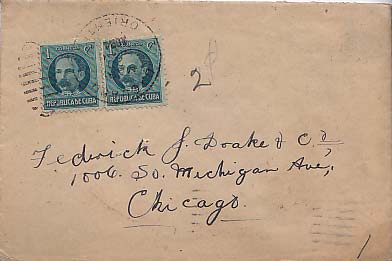 CORREOS CORREOS
1 C 1 C
REPUBLICA DE CUBA REPUBLICA DE CUBA
ORIENTE
2
Fedrick J. Drake & Co,
1006. So. Michigan Ave,
Chicago.
1